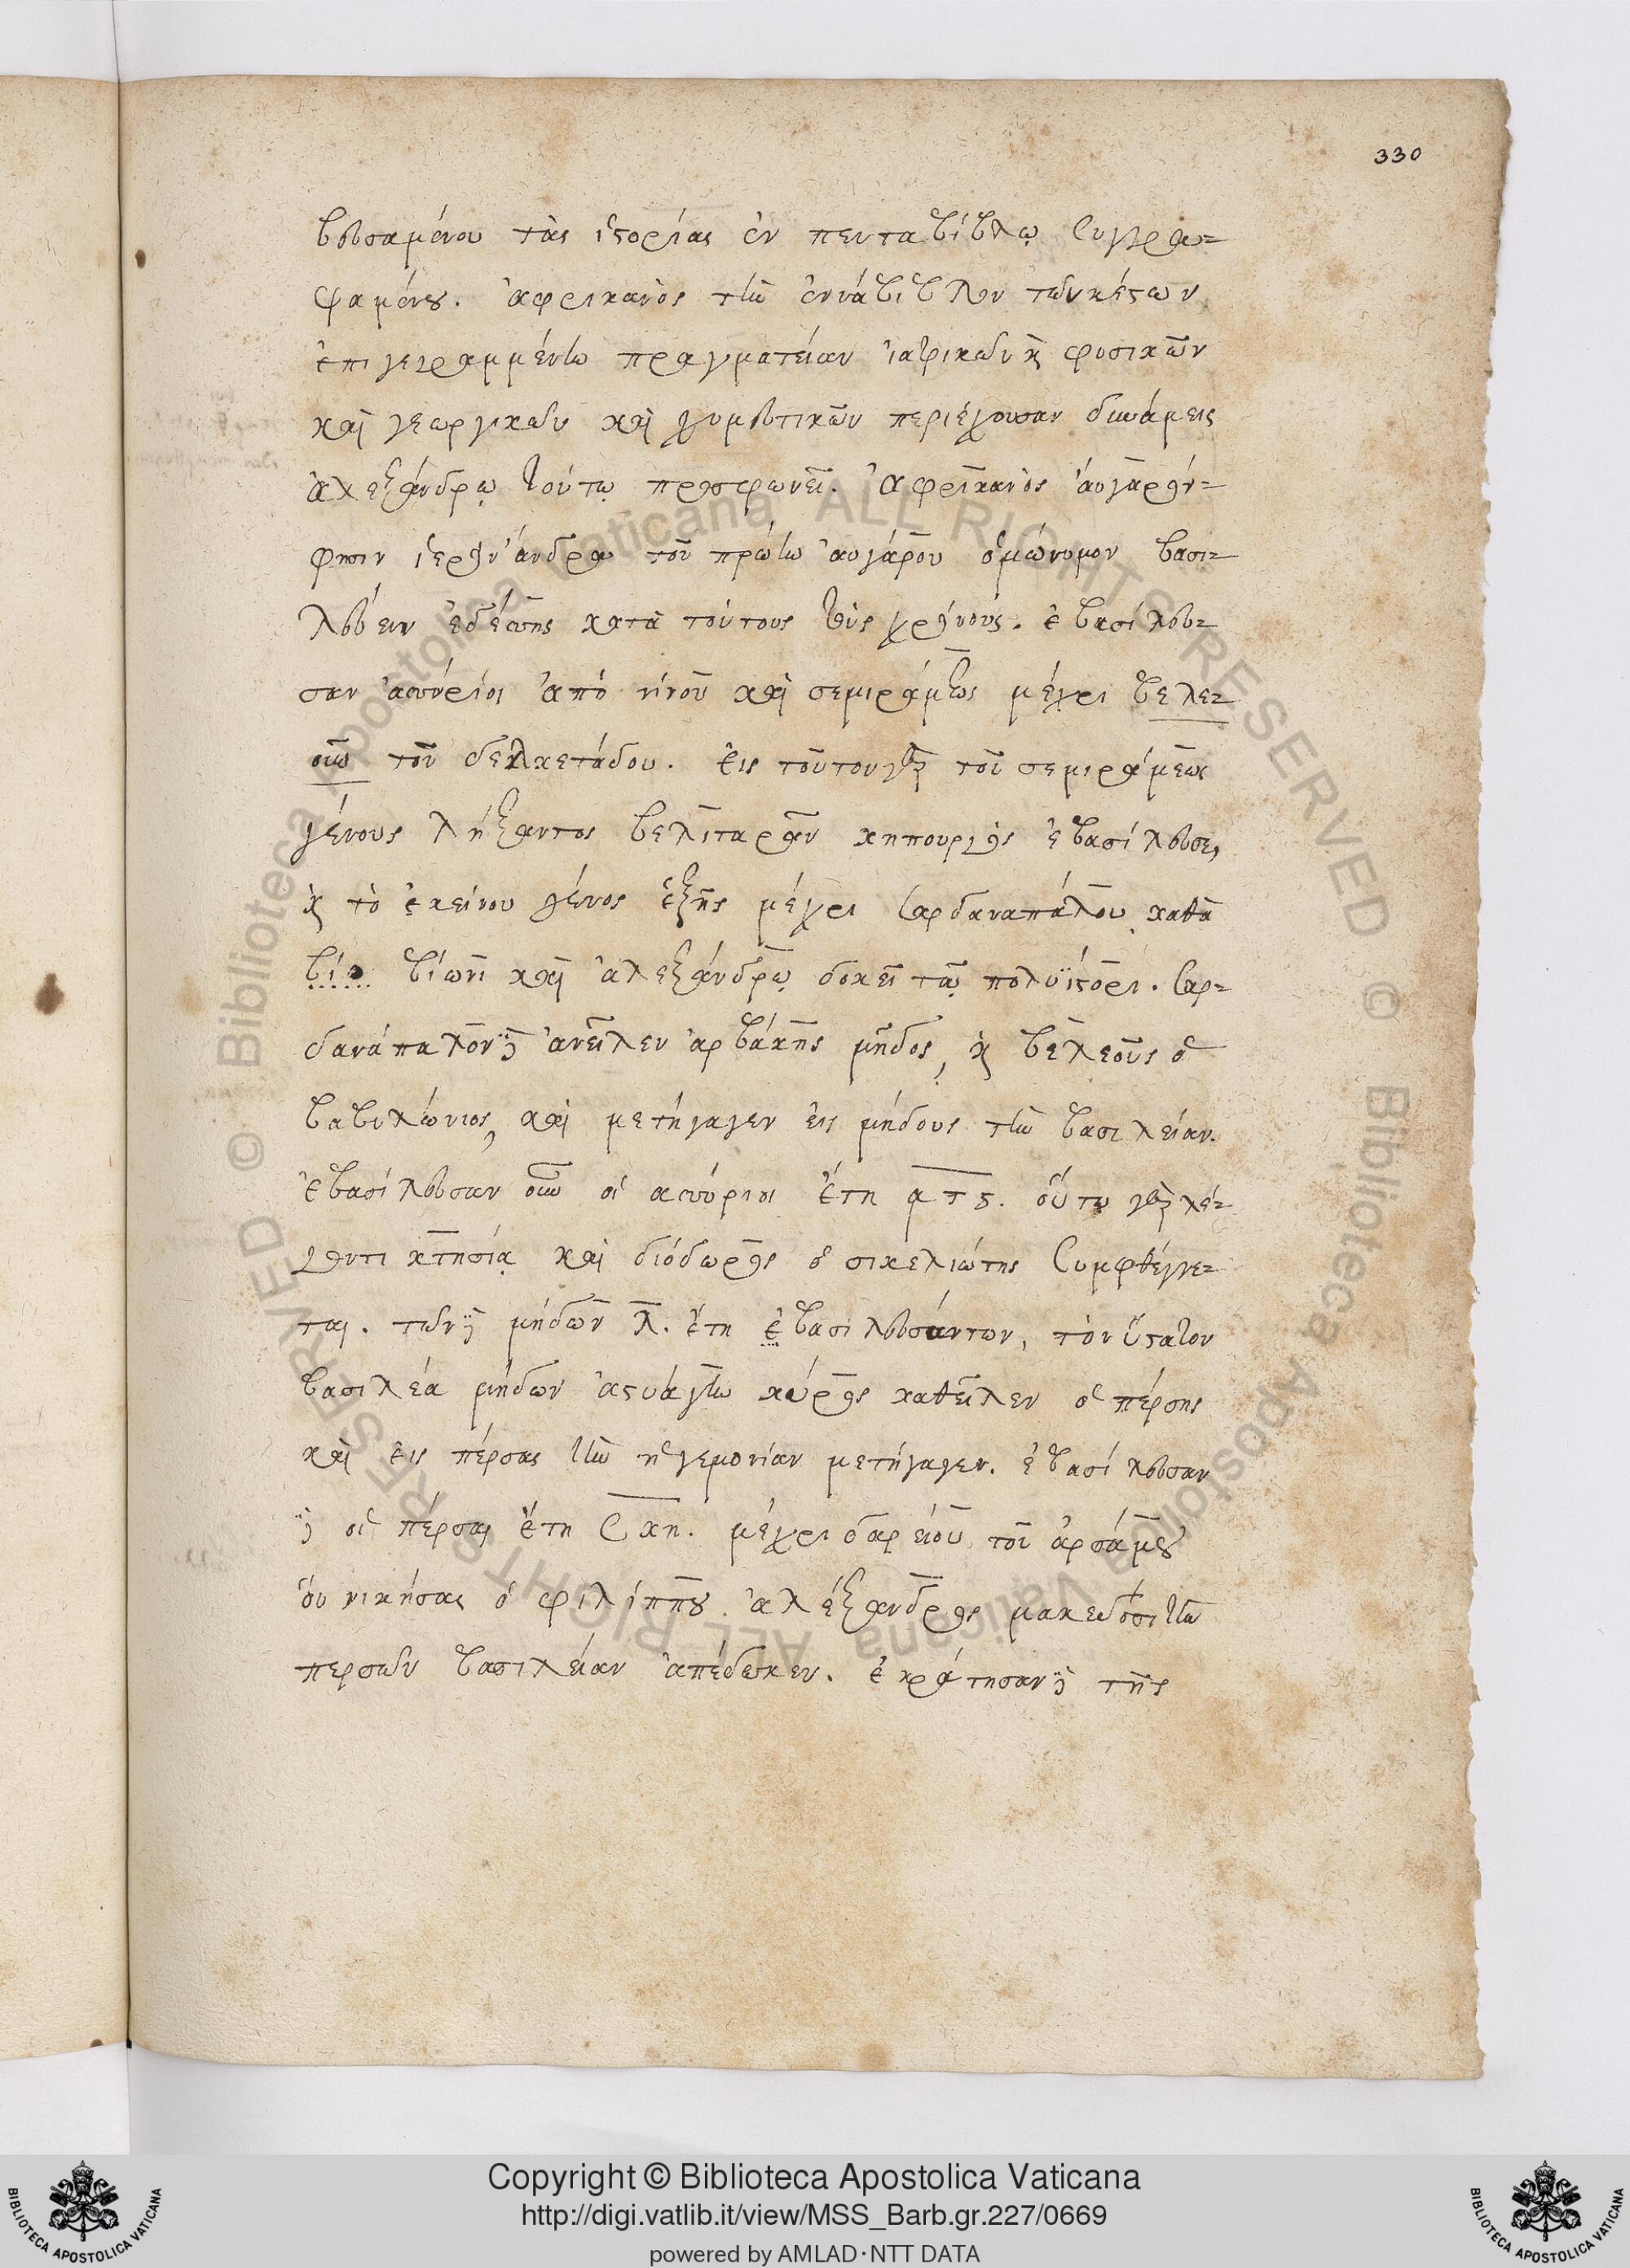 330
βουσαμένου τὰς ἱστορίας ἐν πενταβίβλῳ συγγρα-
ψαμένου. ἀφρικανὸς τὴν ἐννάβιβλον τῶν κέστων
ἐπιγεγραμμένην πραγματείαν ἰατρικῶν καὶ φυσικῶν
καὶ γεωργικῶν καὶ χυμευτικῶν περιέχουσαν δυνάμεις
ἀλεξάνδρῳ τούτῳ προσφωνεῖ. ἀφρικανὸς ἀυγαρόν-
φησιν ἱερὸν ἄνδρα τοῦ πρώην ἀυγάρου ὁμώνυμον βασι-
λεύειν ἐδέσσης κατὰ τούτους τοὺς χρόνους. ἐβασίλευ-
σαν ἀσσύριοι ἀπὸ νίνου καὶ σεμιράμεως μέχρι βελε-
οῦν τοῦ δελκετάδου. εἰς τοῦτον γὰρ τοῦ σεμιράμεως
γένους λήξαντος βελιταρᾶν κηπουργὸς ἐβασίλευσε,
καὶ τὸ ἐκείνου γένος ἑξῆς μέχρι σαρδαναπάλου, καθὰ
βίωνι καὶ ἀλεξάνδρῳ δοκεῖ τῷ πολυΐστορι. σαρ-
δανάπαλον δὲ ἀνεῖλεν ἀρβάκης μῆδος, καὶ βελεοῦς ὁ
βαβυλώνιος, καὶ μετήγαγεν εἰς μήδους τὴν βασιλείαν.
ἐβασίλευσαν οὖν οἱ ἀσσύριοι ἔτη ατς. οὕτω γὰρ λέ-
γοντι κτησίᾳ καὶ διόδωρος ὁ σικελιώτης συμφθέγγε-
ται. τῶν δὲ μήδων λ. ἔτη ἐβασιλευσάντων, τὸν ὕστατον
βασιλέα μήδων ἀστυάγην κύρος καθεῖλεν ὁ πέρσης
καὶ εἰς πέρσας τὴν ἡγεμονίαν μετήγαγεν. ἐβασίλευσαν
δὲ οἱ πέρσαι ἔτη σκη. μέχρι δαρείου τοῦ ἀρσάμου
ὃν νικήσας ὁ φιλίππου ἀλέξανδρος μακεδόσι τὴν
περσῶν βασιλείαν ἀπέδωκεν. ἐκράτησαν δὲ τῆς
© Biblioteca Apostolica Vaticana ALL RIGHTS RESERVED
Copyright © Biblioteca Apostolica Vaticana
http://digi.vatlib.it/view/MSS_Barb.gr.227/0669
powered by AMLAD·NTT DATA
BIBLIOTECA APOSTOLICA VATICANA
BIBLIOTECA APOSTOLICA VATICANA